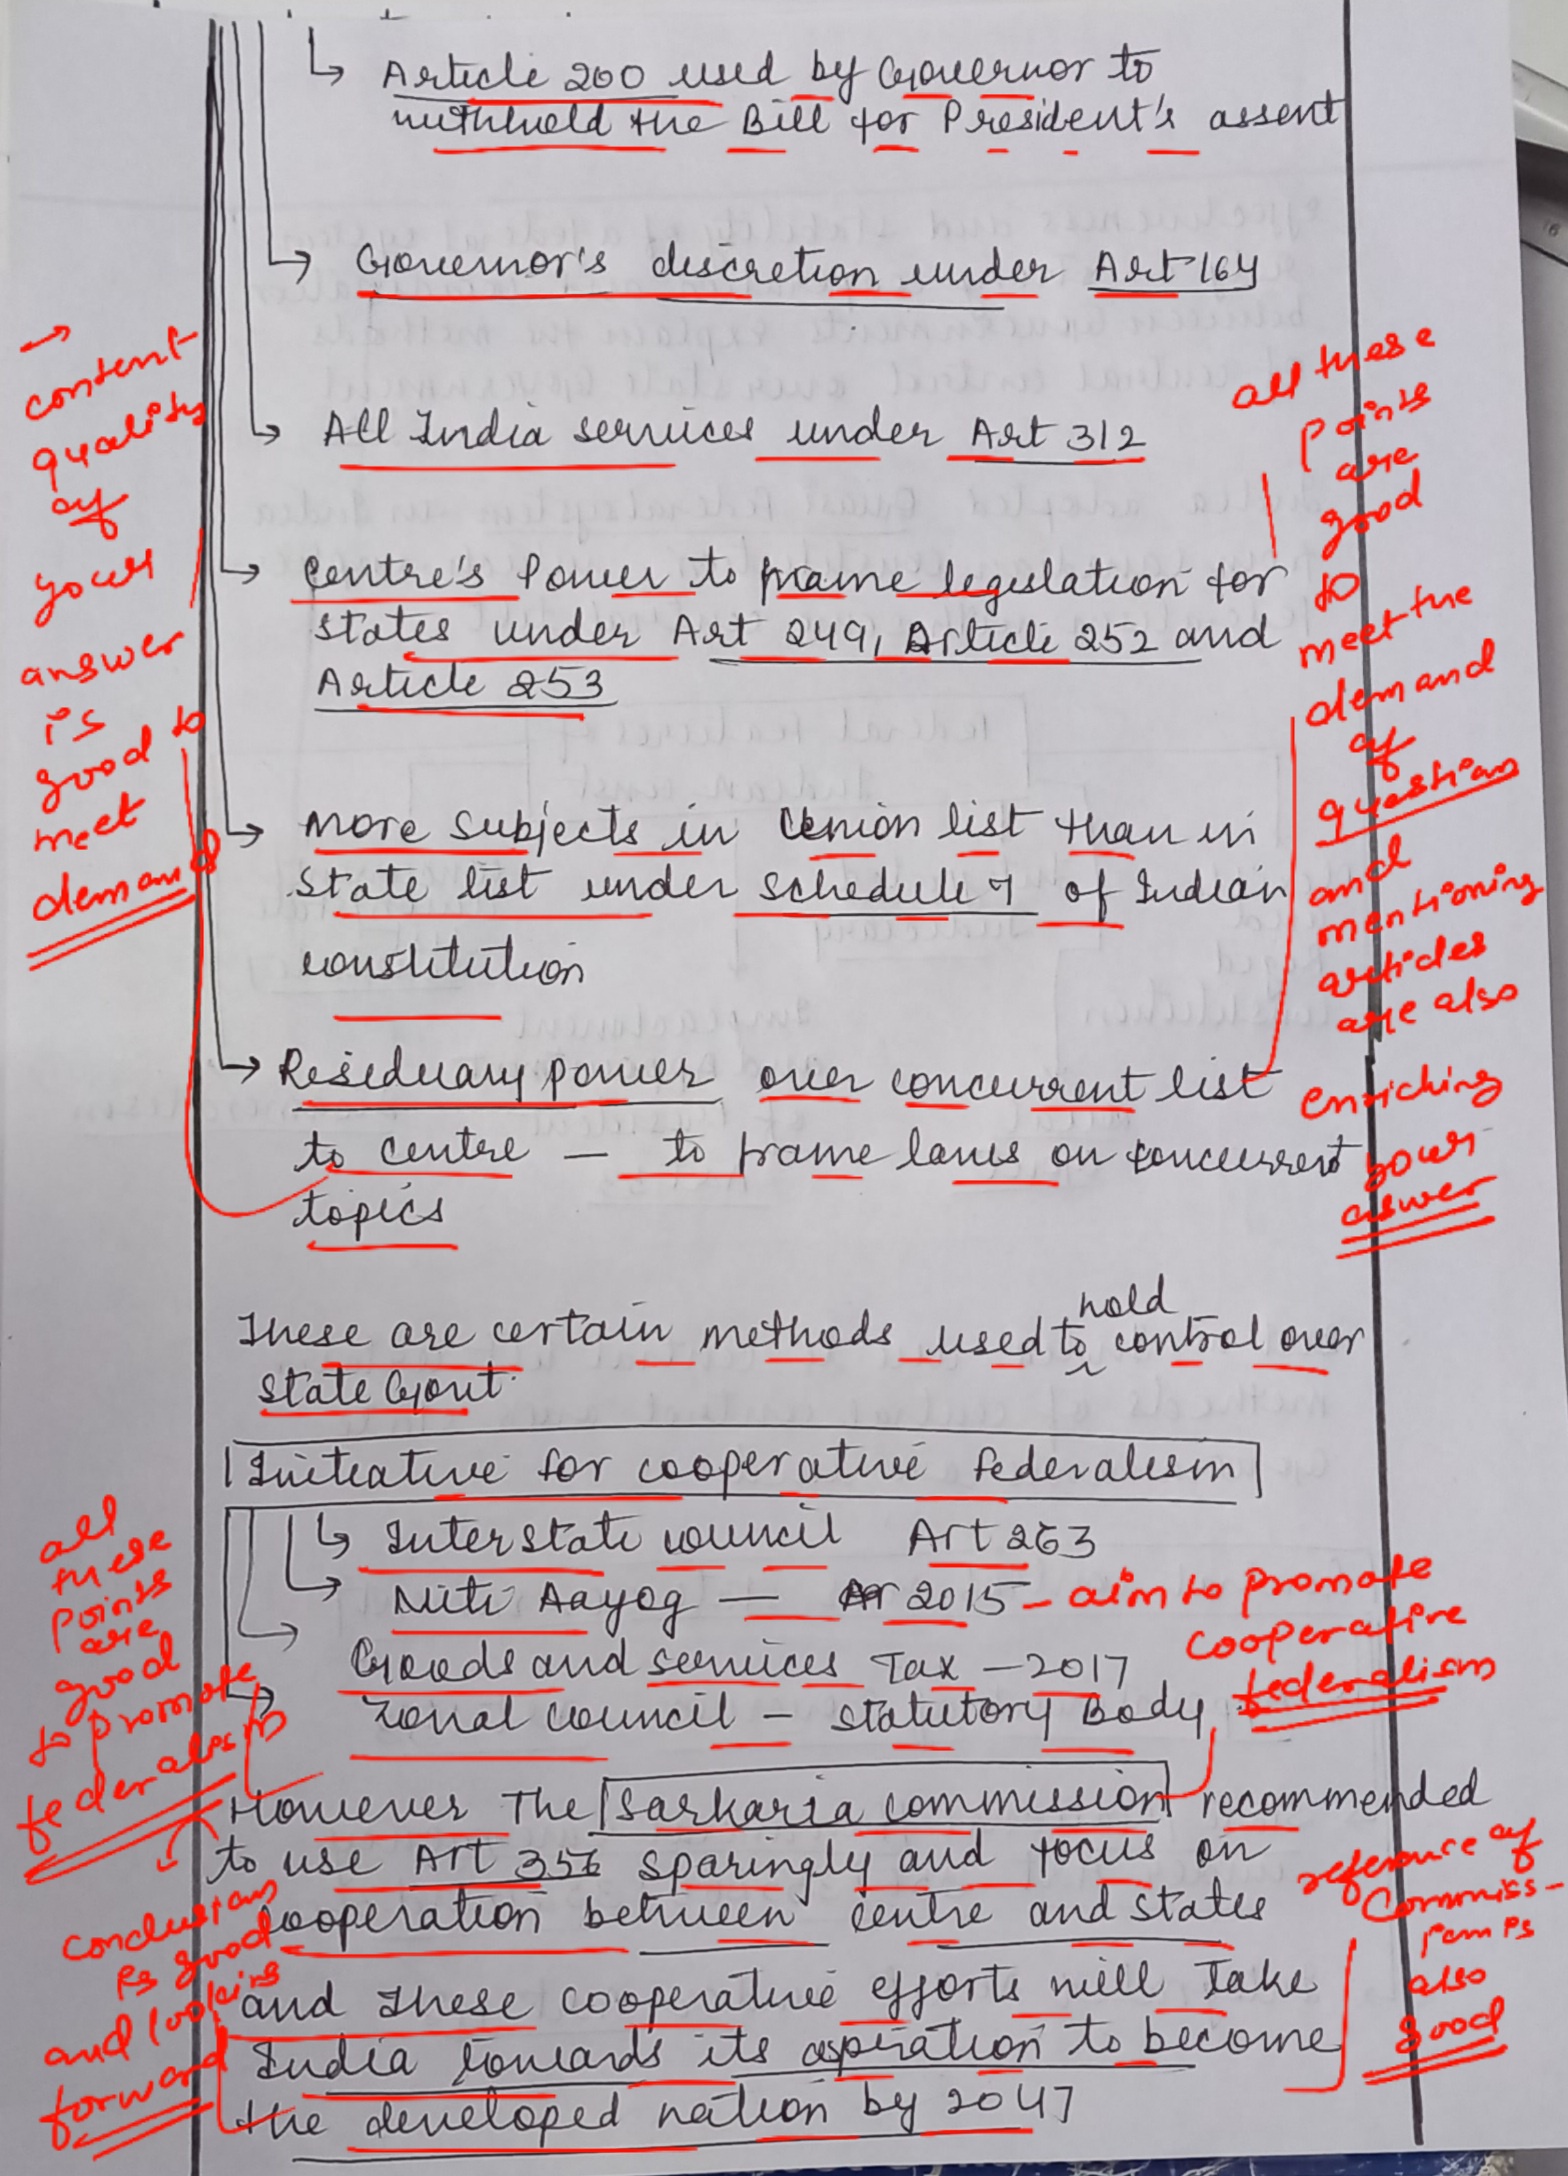 Article 200 used by Governor to
withhold the Bill for President's assent
Governor's discretion under Art 164
All India services under Art 312
Centre's Power to frame legislation for
states under Art 249, Article 252 and
Article 253
More subjects in Union list than in
state list under schedule 7 of Indian
constitution
Residuary power over concurrent list
to centre — to frame laws on concurrent
topics
These are certain methods used to hold control over
state Govt.
Initiative for cooperative federalism
Interstate council Art 263
Niti Aayog — 2015
Goods and services Tax - 2017
Zonal council - statutory Body
However The Sarkaria commission recommended
to use Art 356 sparingly and focus on
cooperation between centre and states
and these cooperative efforts will take
India towards its aspiration to become
the developed nation by 2047
content
quality
of
your
answer
is
good to
meet
demand
all these
points
are
good
to
meet the
demand
of
question
and
mentioning
articles
are also
enriching
your
aswer
- aim to promote
cooperative
federalism
all
these
points
are
good
to promote
federalism
conclusion
is good
and looking
forward
reference of
Commiss-
ion is
also
good